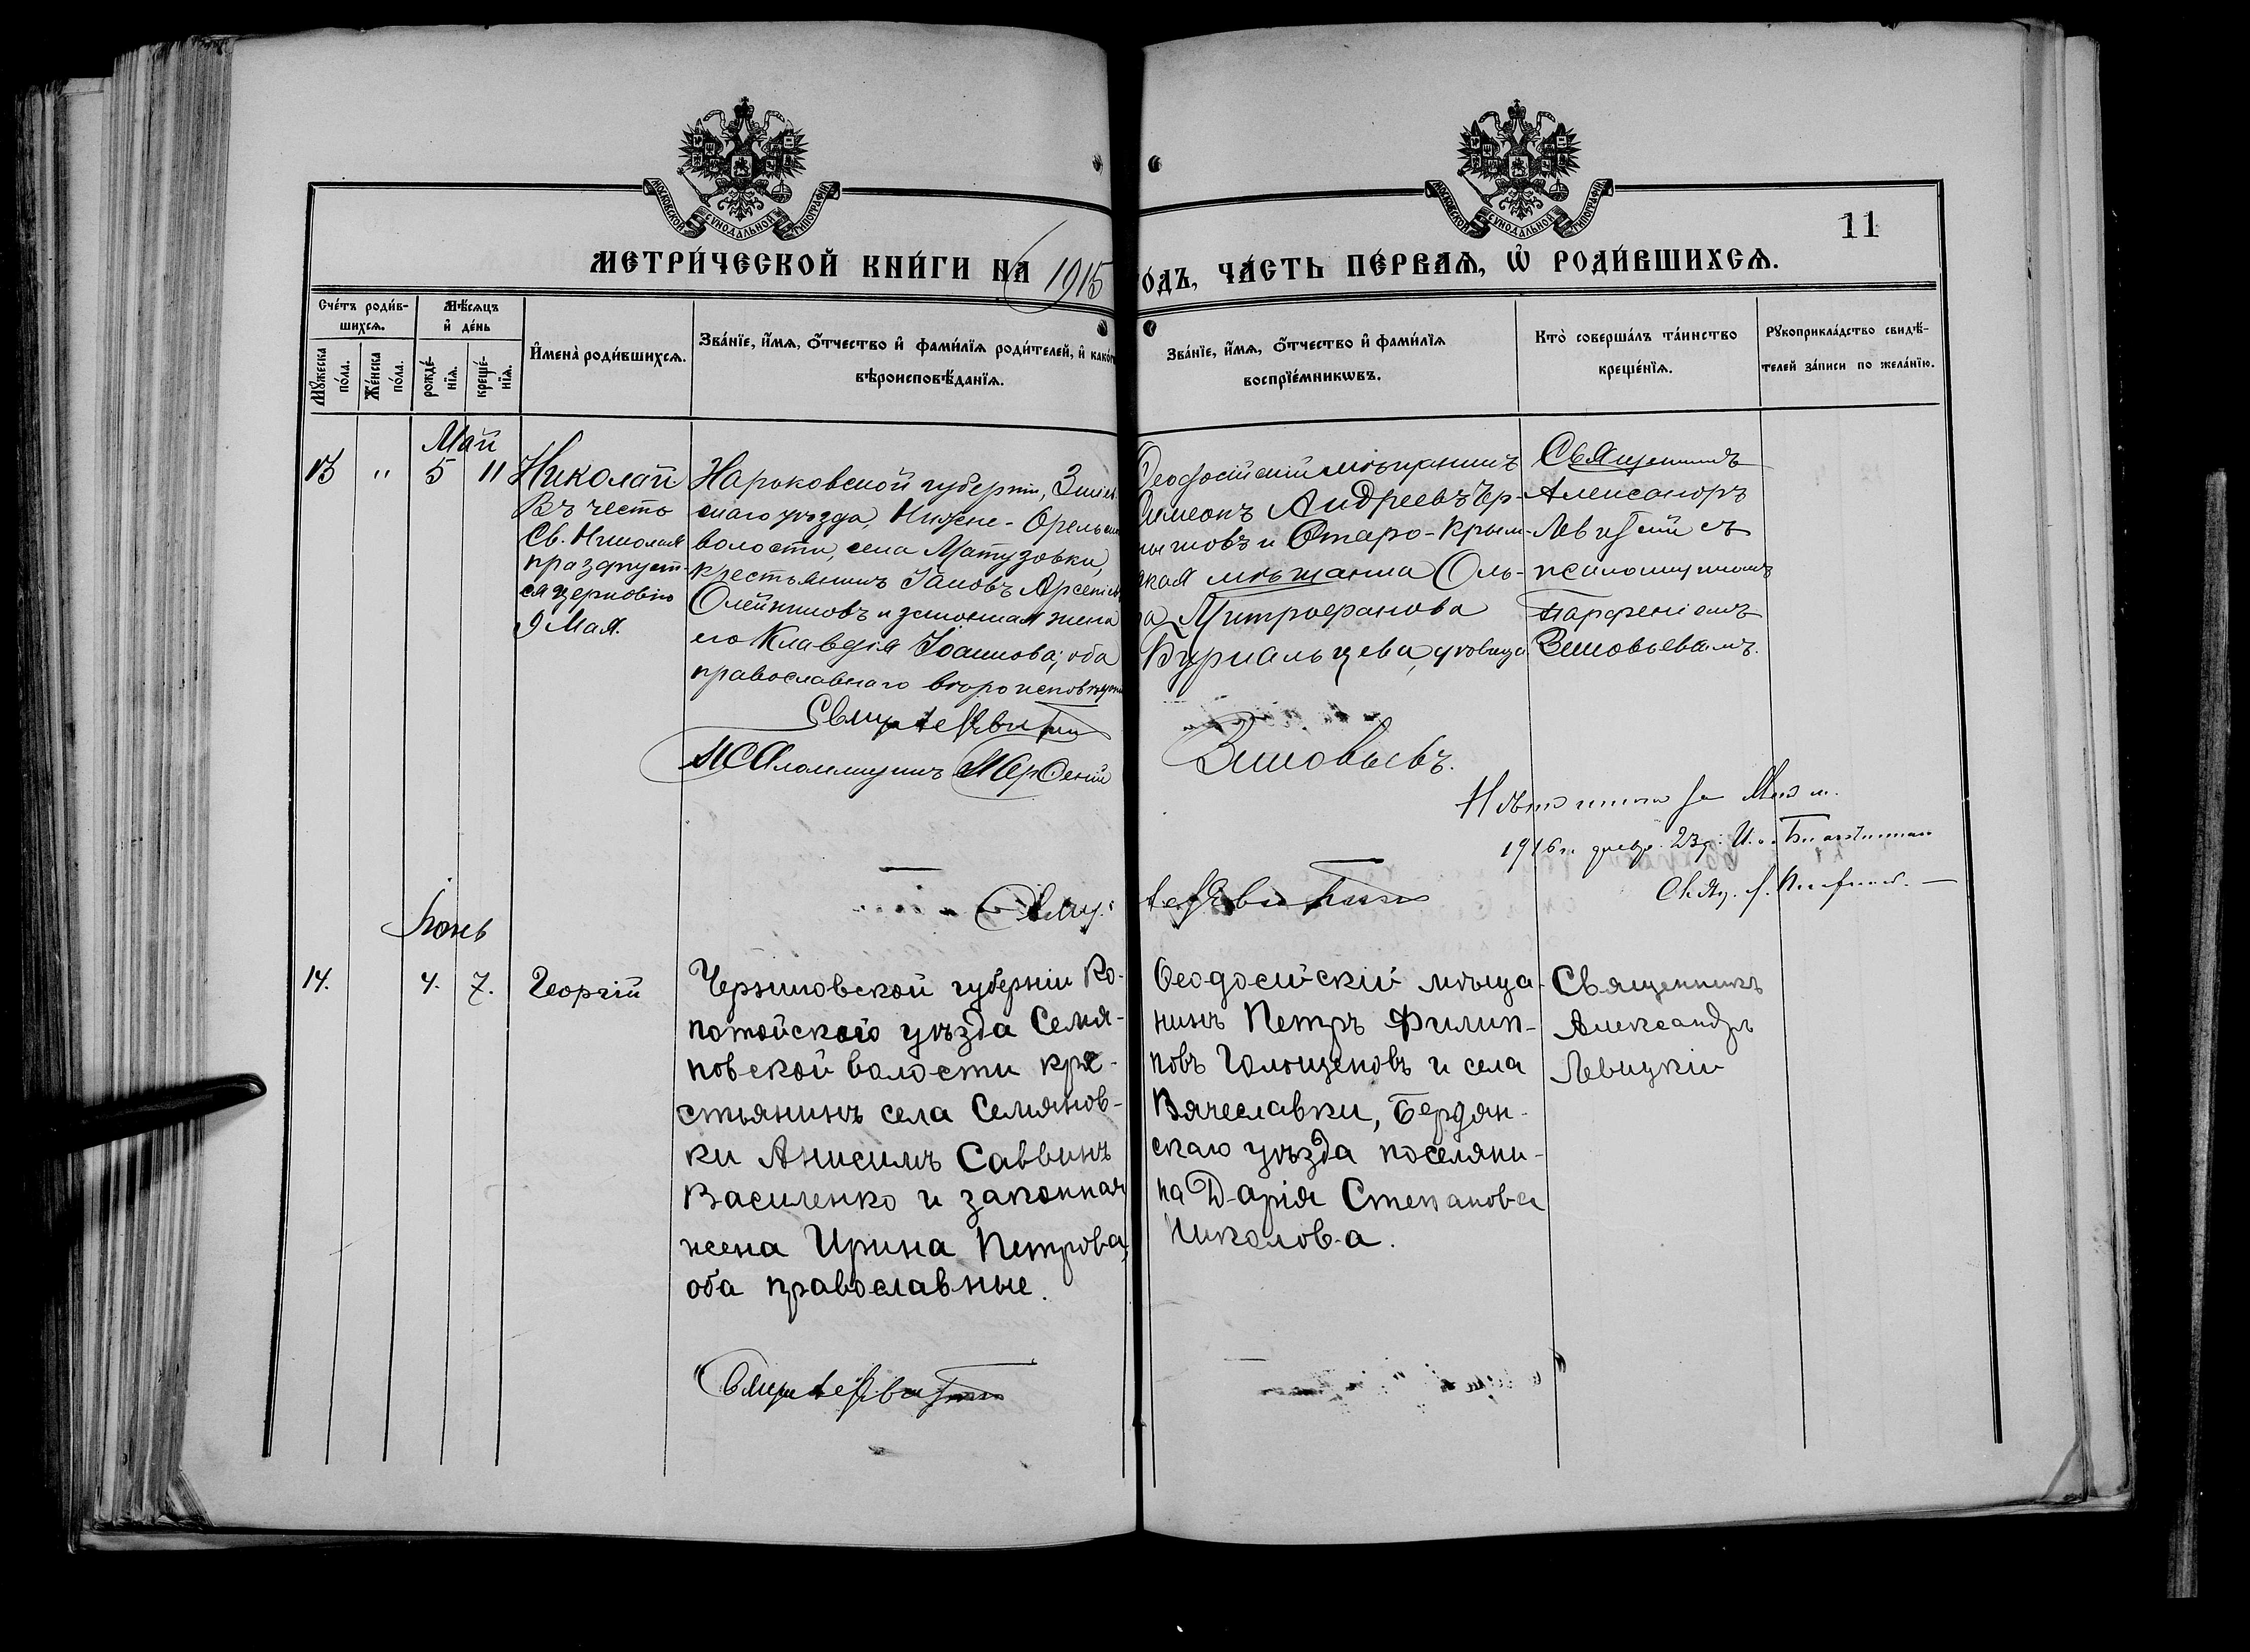 11
МЕТРИ́ЧЕСКОЙ КНИ́ГИ НА 1915 ГО́ДЪ, ЧА́СТЬ ПЕ́РВАѦ, Ѡ҆ РОДИ́ВШИХСѦ.
МОСКОВСКОЙ СѴНОДАЛЬНОЙ ТИПОГРАФІИ
МОСКОВСКОЙ СѴНОДАЛЬНОЙ ТИПОГРАФІИ
Сче́тъ роди́в-
шихсѧ.
Мꙋ́жеска по́ла.
Же́нска по́ла.
Мѣ́сѧцъ
и҆ де́нь
рожде́-
нїѧ.
креще́-
нїѧ.
И҆мена̀ роди́вшихсѧ.
Зва́нїе, и҆́мѧ, ѻ҆́тчество и҆ фами́лїѧ роди́телей, и҆ како́гѡ
вѣроисповѣ́данїѧ.
Зва́нїе, и҆́мѧ, ѻ҆́тчество и҆ фами́лїѧ
воспрїе́мникѡвъ.
Кто̀ соверша́лъ та́инство
креще́нїѧ.
Рꙋкоприкла́дство свидѣ́-
телей за́писи по жела́нїю.
Май
13 " 5 11
Николай
Въ честь
Св. Николая
празднует-
ся церковію
9 Мая.
Харьковской губерніи, Зміев-
скаго уѣзда, Нижне-Орельской
волости, села Матузовки,
крестьянинъ Іаковъ Арсеніевъ
Олейниковъ и законная жена
его Клавдія Іоаннова; оба
православнаго вѣроисповѣданія
Ѳеодосійскій мѣщанинъ
Симеонъ Андреевъ Чер-
никовъ и Старо-Крым-
ская мѣщанка Оль-
га Митрофанова
Бурнальцева, дѣвица
Священникъ
Александръ
Левицкій съ
псаломщикомъ
Парфеніемъ
Зиновьевымъ.
Свящ. Ал. Левицкій
Псаломщикъ Парфеній Зиновьевъ.
1916 г. февр. 23 д.
Свящ. Ал. Левицкій
Іюнь
14. 4. 7.
Георгій
Черниговской губерніи Ко-
нотопскаго уѣзда Семя-
новской волости кре-
стьянинъ села Семянов-
ки Анисимъ Саввинъ
Василенко и законная
жена Ирина Петрова,
оба православные.
Ѳеодосійскій мѣща-
нинъ Петръ Филип-
повъ Голощеповъ и села
Вячеславки, Бердян-
скаго уѣзда поселян-
ка Дарія Степанова
Николова.
Священникъ
Александръ
Левицкій
Свящ. Ал. Левицкій